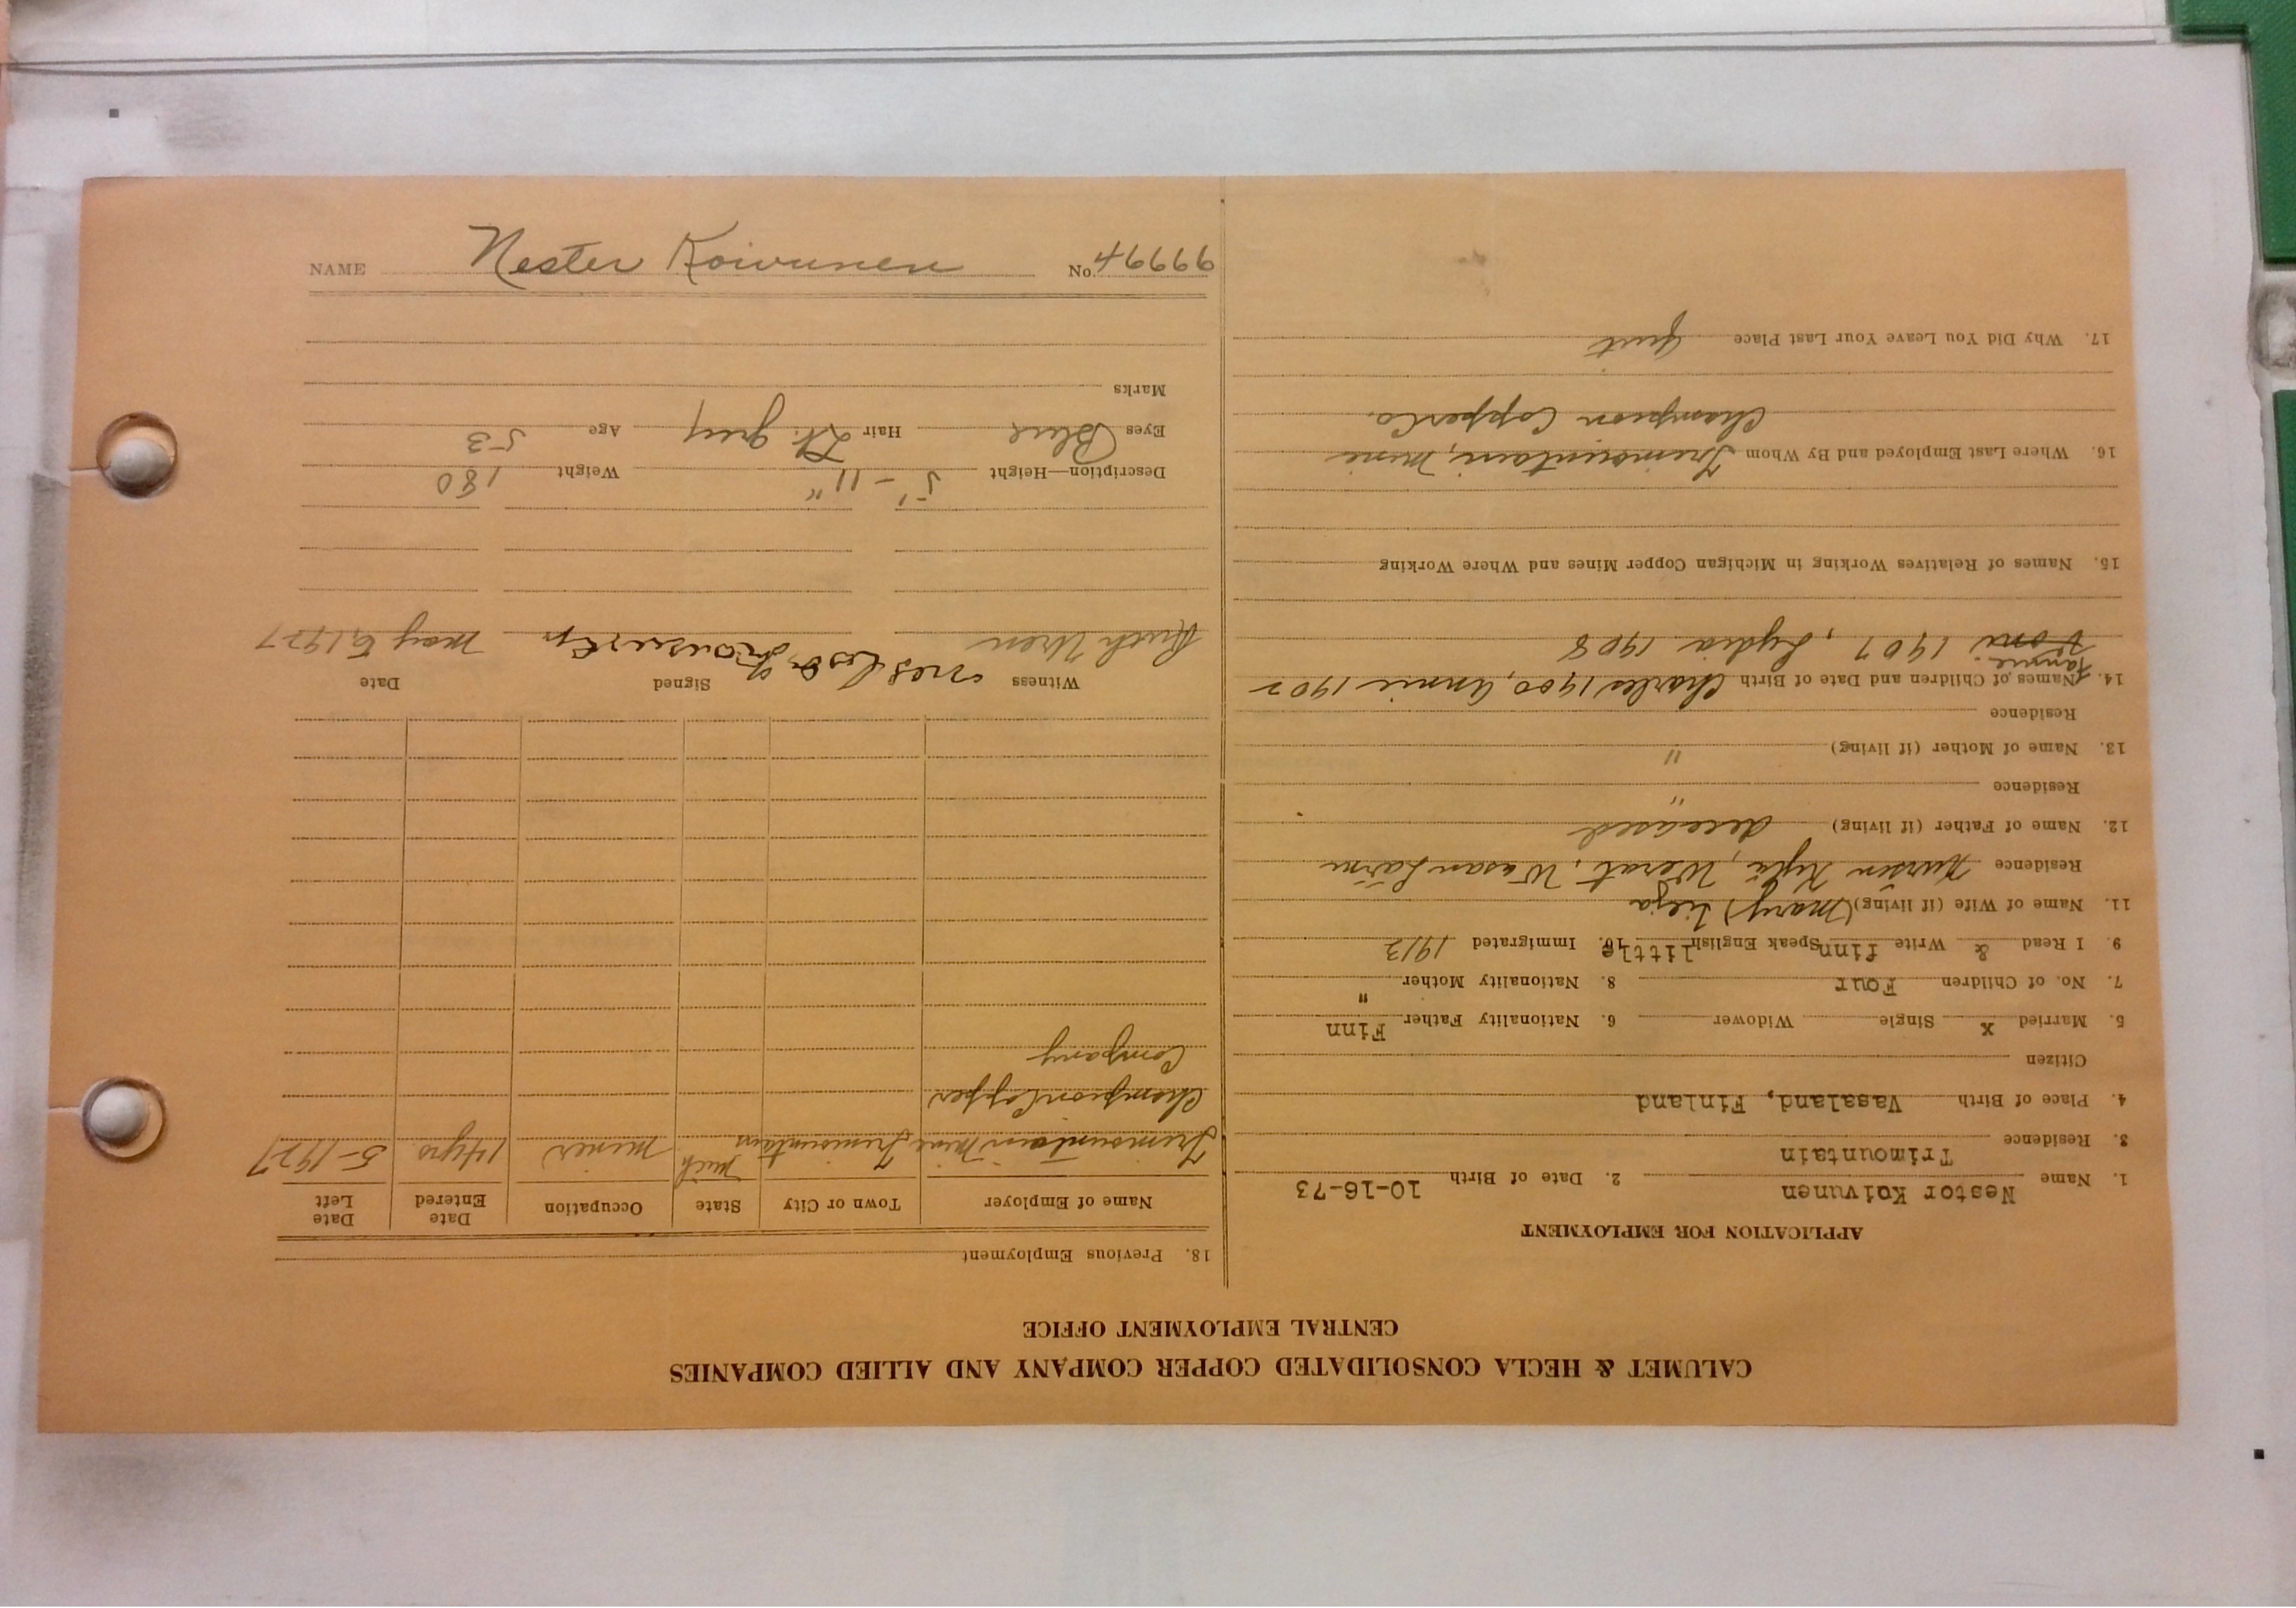 NAME Nester Koivunen No. 49999
CALUMET & HECLA CONSOLIDATED COPPER COMPANY AND ALLIED COMPANIES
CENTRAL EMPLOYMENT OFFICE
APPLICATION FOR EMPLOYMENT
1. Name Nestor Koivunen 2. Date of Birth 10-16-73
3. Residence Trimountain
4. Place of Birth Vasaland, Finland
Citizen
5. Married x Single Widower 6. Nationality Father Finn
7. No. of Children Four 8. Nationality Mother "
9. I Read & Write finn Speak English little 10. Immigrated 1913
11. Name of Wife (if living) (Mary)
Residence
12. Name of Father (if living) deceased
Residence "
13. Name of Mother (if living) "
Residence
14. Names of Children and Date of Birth Charles 1900, Annie 1902
Fannie 1907, Lydia 1908
15. Names of Relatives Working in Michigan Copper Mines and Where Working
16. Where Last Employed and By Whom Trimountain, Mine
Champion Copper Co.
17. Why Did You Leave Your Last Place quit
18. Previous Employment
Name of Employer Town or City State Occupation Date Entered Date Left
Trimountain Mine Trimountain Mich miner 14 yrs 5-1927
Champion Copper
Company
Witness Signed Date
Ruth Uren May 6, 1927
Description—Height 5'-11" Weight 180
Eyes Blue Hair Lt. grey Age 53
Marks